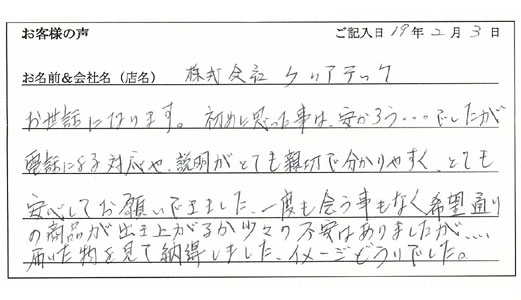 お客様の声 ご記入日 19年 2月 3日
お名前&会社名（店名） 株式会社 クリアテック
お世話になります。初めに思った事は、安かろう…でしたが
電話による対応や、説明がとても親切で分かりやすく、とても
安心してお願いできました、一度も会う事もなく希望通り
の商品が出き上がるか少々の不安はありましたが、…
届いた物を見て納得しました、イメージどうりでした。